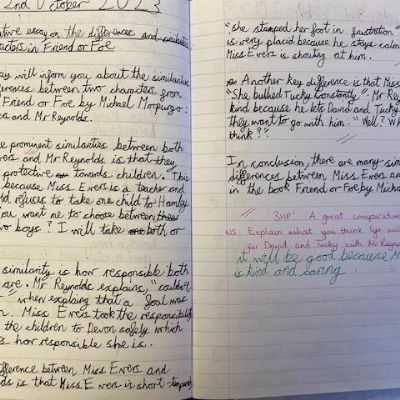 2nd October 2023
ative essay on the differences and
acters in Friend or Foe
ay will inform you about the similarities
erences between two characters from
Friend or Foe by Michael Morpurgo:
and Mr Reynolds.
e prominent similarities between both
vers and Mr Reynolds is that they
protective towards children. This
because Miss Evers is a teacher and
refuses to take one child to
ou want me to choose between
wo boys? I will take both or
similarity is how responsible both
are. Mr Reynolds explains, "couldn't
when explaing that a Soul was
n. Miss Evers took the responsibility
the children to Devon safely which
s how responsible she is.
ifference between Miss Evers and
ds is that Miss Evers is short
"she stamped her foot in frustration"
is very placid because he stays calm
Miss Evers is shouting at him.
Another key difference is that Miss
"She bullied Tucky constantly". Mr Rey
kind because he lets David and Tucky
they want to go with him. "Well? Wh
think?"
In conclusion, there are many sim
differences between Miss Evers an
in the book Friend or Foe by Micha
3HP! A great comparative
NS. Explain what you think
for David and Tucky with Mr Reyn
it will be good because M
is kind and caring.